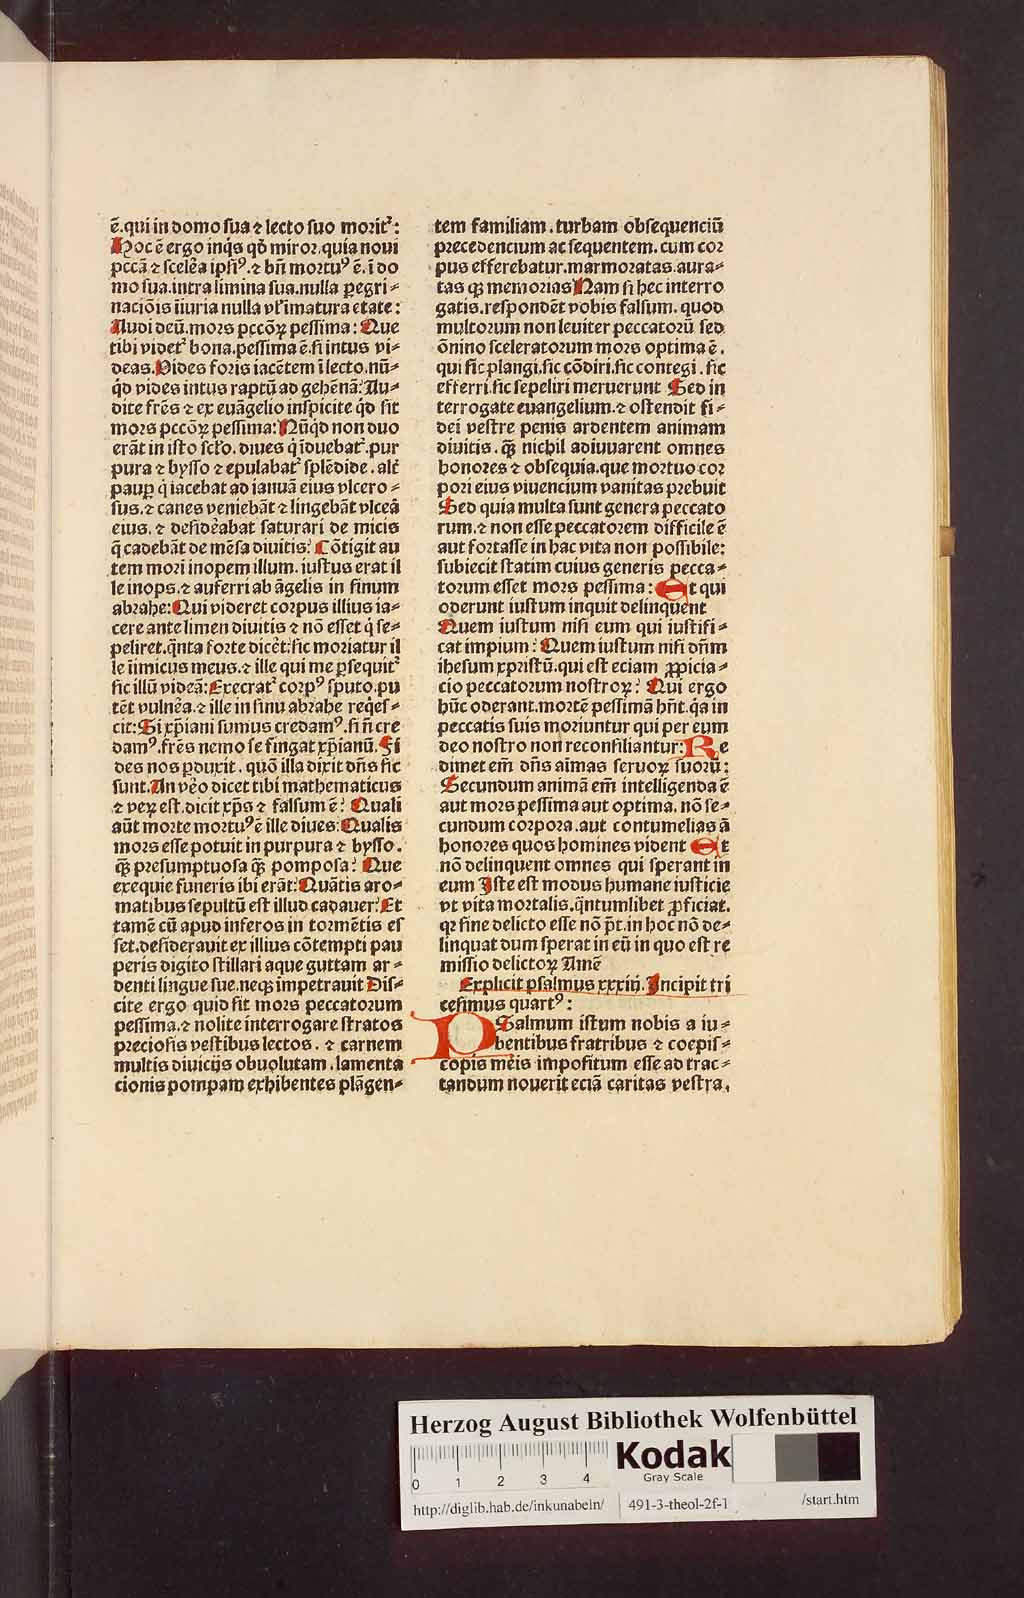 ē.qui in domo sua ⁊ lecto suo moritᷣ:
Hoc ē ergo inqͥs qđ miror.quia noui
pccā ⁊ sceleā ipsiꝰ.⁊ bn̄ mortuꝰ ē.ī do
mo sua.intra limina sua.nulla peregri⸗
nacōis iīuria nulla vl̓ īmatura etate:
Audi deū.mors pccōꝝ pessima: Que
tibi videtᷣ bona.pessima ē.si intus vi⸗
deas.Vides foris iacētem ī lecto.nū⸗
qͥd vides intus raptū ad gehēnā: Au⸗
dite frēs ⁊ ex euāgelio inspicite qͥd sit
mors pccōꝝ pessima: Nūqͥd non duo
erāt in isto sclo̓.diues qͥ īduebatᷣ.pur
pura ⁊ bysso ⁊ epulabatᷣ splēdide.alt̄
paup qͥ iacebat ad ianuā eius vlcero⸗
sus.⁊ canes veniebāt ⁊ lingebāt vlceā
eius.⁊ desideābat saturari de micis
q̄ cadebāt de mēsa diuitis: Cōtigit au
tem mori inopem illum.iustus erat il
le inops.⁊ auferri ab āgelis in sinum
abrahe: Qui videret corpus illius ia⸗
cere ante limen diuitis ⁊ nō esset qͥ se⸗
peliret.qͣnta forte dicēt:sic moriatur il
le iīmicus meus.⁊ ille qui me ꝑsequitᷣ
sic illū videā: Execratᷣ corpꝰ sputo.pu
tēt vulnēa.⁊ ille in sinu abrahe reqͥes⸗
cit: Si xp̄iani sumus credamꝰ.si n̄ cre
damꝰ.frēs nemo se fingat xp̄ianū.Fi
des nos ꝑduxit.quō illa dixit dn̄s sic
sunt.An vēo dicet tibi mathematicus
⁊ veꝝ est.dicit xp̄s ⁊ falsum ē: Quali
aūt morte mortuꝰ ē ille diues: Qualis
mors esse potuit in purpura ⁊ bysso.
qͣꝫ presumptuosa qͣꝫ pomposa: Que
exequie funeris ibi erāt: Quātis aro⸗
matibus sepultū est illud cadauer: Et
tamē cū apud inferos in tormētis es
set.desiderauit ex illius cōtempti pau
peris digito stillari aque guttam ar⸗
denti lingue sue.neqꝫ impetrauit Dis⸗
cite ergo quid sit mors peccatorum
pessima.⁊ nolite interrogare stratos
preciosis vestibus lectos.⁊ carnem
multis diuicijs obuolutam.lamenta
cionis pompam exhibentes plāgen⸗
tem familiam.turbam obsequenciū
precedencium ac sequentem.cum cor
pus efferebatur.marmoratas.aura⸗
tas qꝫ memorias Nam si hec interro
gatis.respondēt vobis falsum.quod
multorum non leuiter peccatorū sed
ōnino sceleratorum mors optima ē.
qui sic plangi.sic cōdiri.sic contegi.sic
efferri.sic sepeliri meruerunt Sed in
terrogate euangelium.⁊ ostendit fi⸗
dei vestre penis ardentem animam
diuitis.qͣꝫ nichil adiuuarent omnes
honores ⁊ obsequia.que mortuo cor
pori eius viuencium vanitas prebuit
Sed quia multa sunt genera peccato
rum.⁊ non esse peccatorem difficile ē
aut fortasse in hac vita non possibile:
subiecit statim cuius generis pecca⸗
torum esset mors pessima: Et qui
oderunt iustum inquit delinquent
Quem iustum nisi eum qui iustifi⸗
cat impium: Quem iustum nisi dn̄m
ihesum xpristū.qui est eciam ꝓpicia⸗
cio peccatorum nostroꝝ: Qui ergo
hūc oderant.mortē pessimā hn̄t.qͣa in
peccatis suis moriuntur qui per eum
deo nostro non reconsiliantur: Re
dimet em̄ dn̄s aīmas seruoꝝ suorū:
Secundum animā em̄ intelligenda ē
aut mors pessima aut optima.nō se⸗
cundum corpora.aut contumelias ā
honores quos homines vident Et
nō delinquent omnes qui sperant in
eum Iste est modus humane iusticie
vt vita mortalis.qͣntumlibet ꝓficiat.
qꝛ sine delicto esse nō pt̄.in hoc nō de⸗
linquat dum sperat in eū in quo est re
missio delictoꝝ Amē
Explicit psalmus xxxiij.Incipit tri
cesimus quartꝰ:
PSalmum istum nobis a iu⸗
bentibus fratribus ⁊ coepis⸗
copis meis impositum esse ad trac⸗
tandum nouerit eciā caritas vestra.
Herzog August Bibliothek Wolfenbüttel
0 1 2 3 4
Kodak
Gray Scale
http://diglib.hab.de/inkunabeln/ 491-3-theol-2f-1 /start.htm